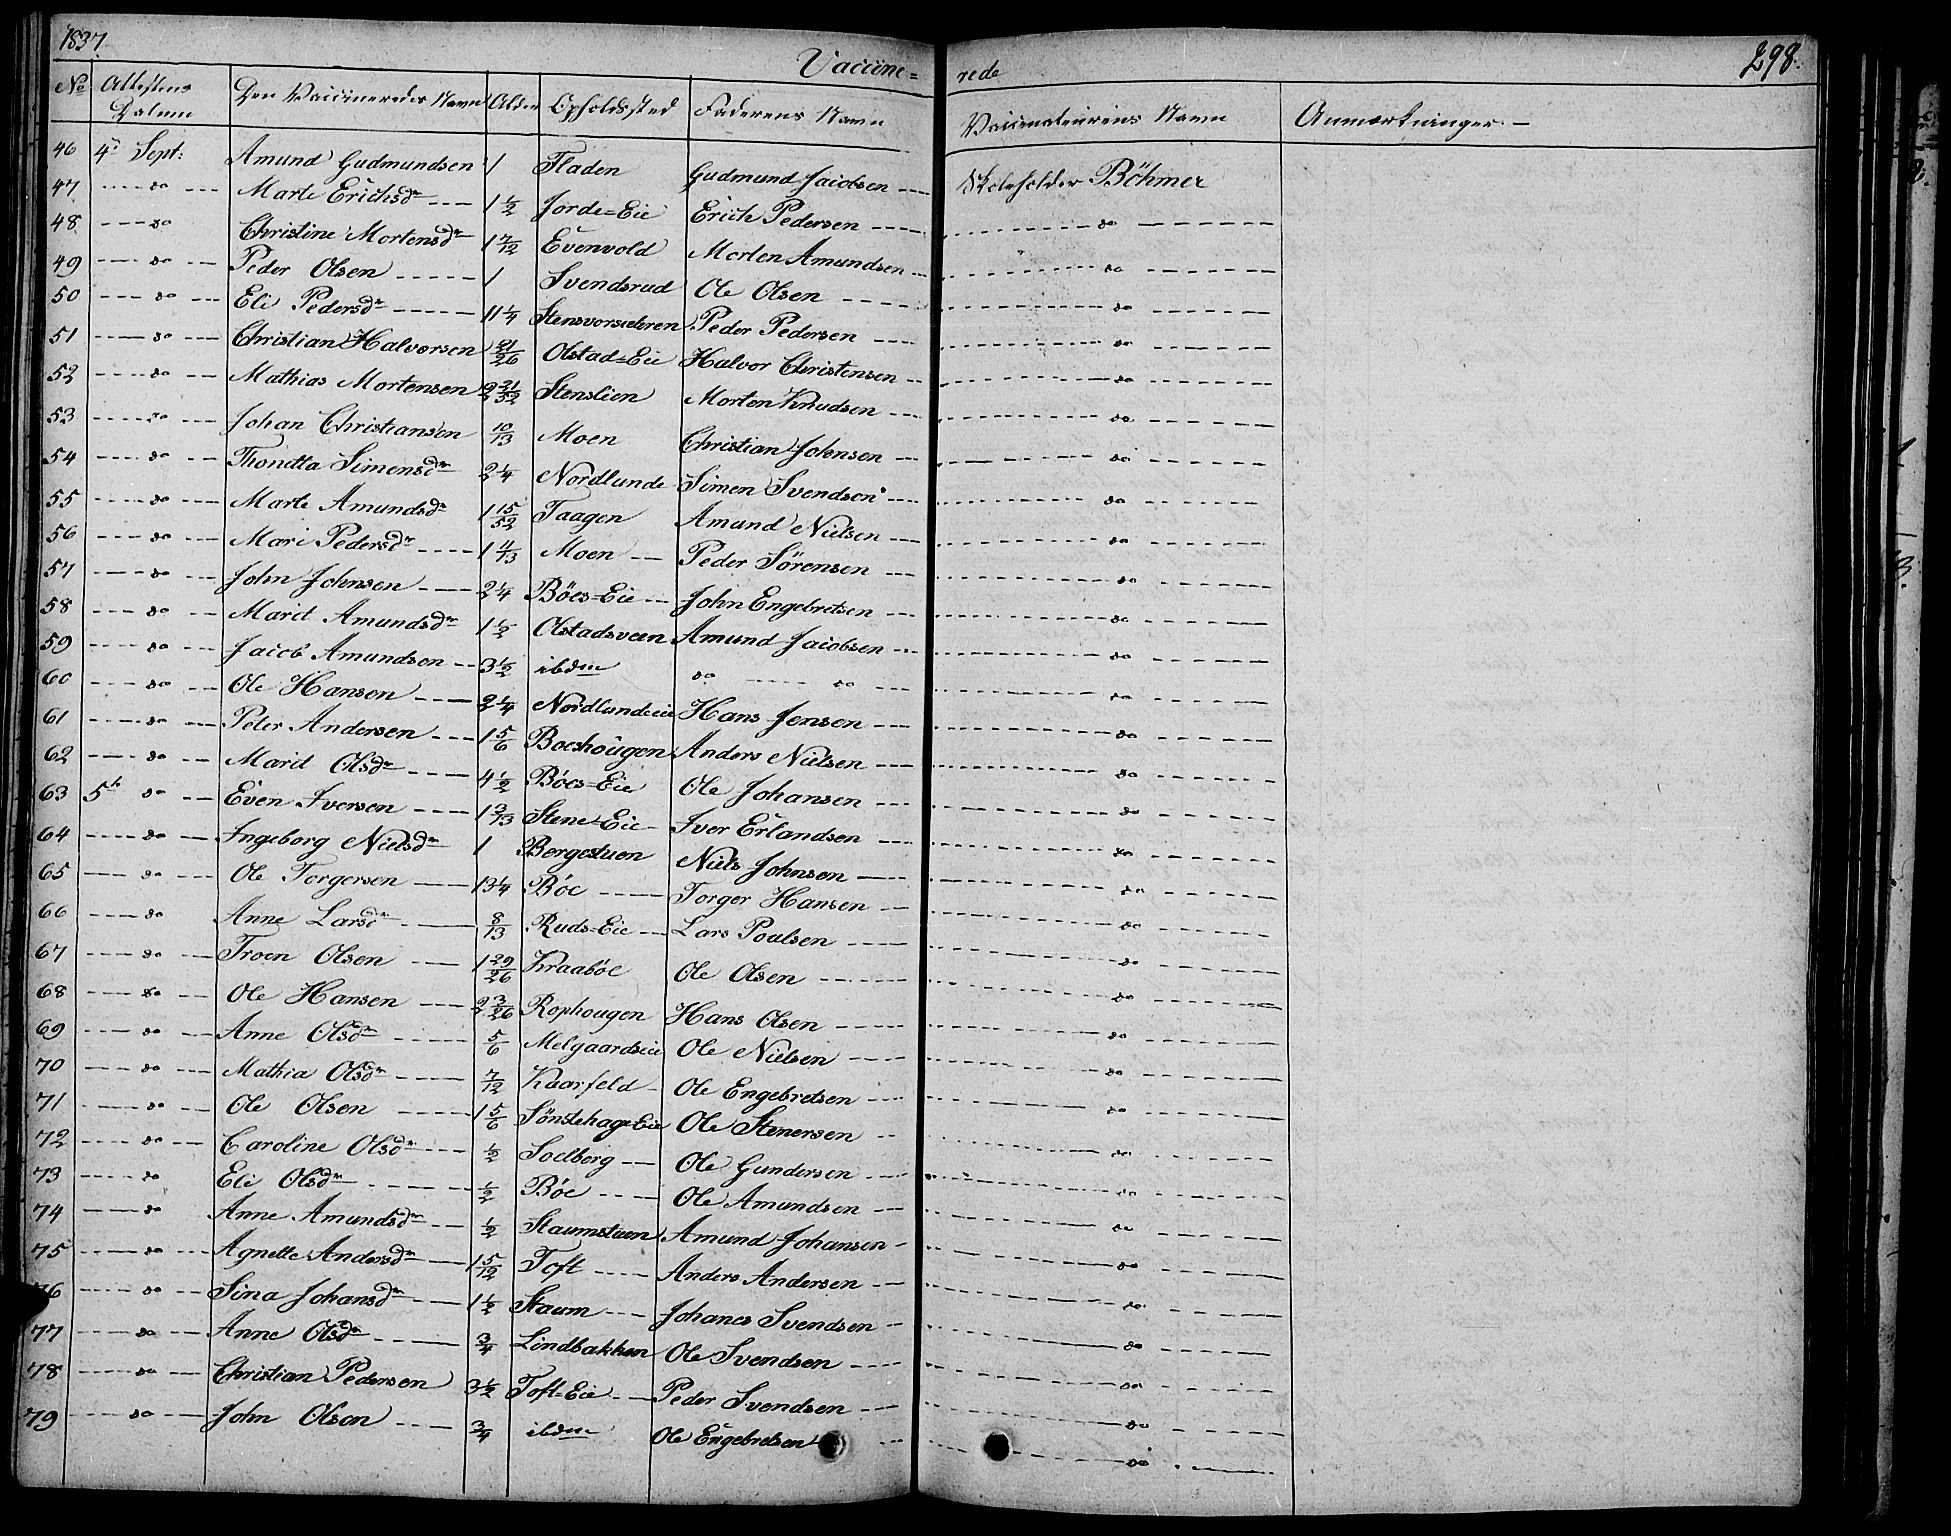 1837. Vaccine= rede 298.
No Attestens Datum Den Vaccineredes Navn Alder Opholdssted Faderens Navn Vaccinateurens Navn Anmærkninger.—
46 4de Sept: Amund Gudmundsen 1 Fladen Gudmund Jacobsen Skoleholder Böhmer
47 do Marte Erichsdr 1 1/2 Jorde=Eie Erich Pedersen do
48 do Christine Mortensdr 1 7/12 Evenvold Morten Amundsen do
49 do Peder Olsen 1 Svendsrud Ole Olsen do
50 do Eli Pedersdr 11 1/4 Stensvorsæteren Peder Pedersen do
51 do Christian Halvorsen 21/26 Olstad=Eie Halvor Christensen do
52 do Mathias Mortensen 2 21/52 Stenslien Morten Knudsen do
53 do Johan Christiansen 10/13 Moen Christian Johnsen do
54 do Thonetta Simensdr 2 1/4 Nordlunde Simen Svendsen do
55 do Marte Amundsdr 1 15/52 Taagen Amund Nielsen do
56 do Mari Pedersdr 1 4/13 Moen Peder Sörensen do
57 do John Johnsen 2 1/4 Böes=Eie John Engebretsen do
58 do Marit Amundsdr 1 1/2 Olstadsveen Amund Jacobsen do
59 do Jacob Amundsen 3 1/2 ibdm do do do
60 do Ole Hansen 2 1/4 Nordlundeeie Hans Jensen do
61 do Peter Andersen 1 5/6 Boeshougen Anders Nielsen do
62 do Marit Olsdr 4 1/2 Böes=Eie Ole Johansen do
63 5te do Even Iversen 1 2/13 Stene=Eie Iver Erlandsen do
64 do Ingeborg Nielsdr 1 Bergestuen Niels Johnsen do
65 do Ole Torgersen 13 1/4 Böe Torger Hansen do
66 do Anne Larsdr 8/13 Ruds=Eie Lars Poulsen do
67 do Troen Olsen 1 29/26 Kraaböe Ole Olsen do
68 do Ole Hansen 2 3/26 Rophougen Hans Olsen do
69 do Anne Olsdr 5/6 Melgaardseie Ole Nielsen do
70 do Mathia Olsdr 7/12 Kaarfeld Ole Engebretsen do
71 do Ole Olsen 1 5/6 Sönstehage=Eie Ole Stenersen do
72 do Caroline Olsdr 1/2 Soelberg Ole Gundersen do
73 do Eli Olsdr 1/2 Böe Ole Amundsen do
74 do Anne Amundsdr 1/2 Staumstuen Amund Johansen do
75 do Agnette Andersdr 1 5/12 Toft Anders Andersen do
76 do Sina Johansdr 1 1/2 Staum Johanes Svendsen do
77 do Anne Olsdr 3/4 Lindbakken Ole Svendsen do
78 do Christian Pedersen 3 1/2 Toft=Eie Peder Svendsen do
79 do John Olsen 3/4 ibdm Ole Engebretsen do